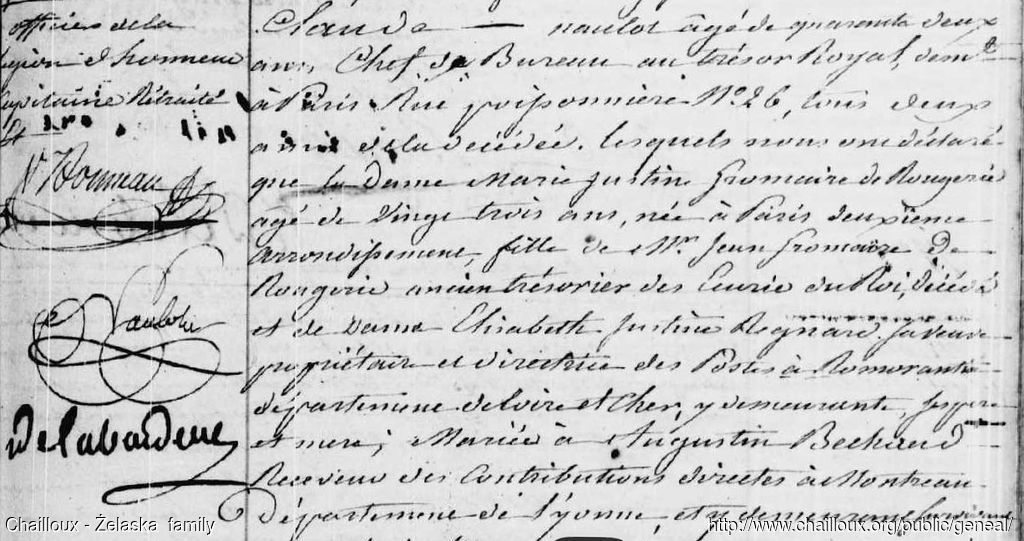 officier de la
légion d'honneur
Capitaine Rétraité
N. Honneau
Naulot
Delabarderie
Claude — naulot agé de quarante deux
ans, Chef de Bureau au trésor Royal, demt
à Paris Rue poissonnière No. 26, tous deux
amis de la décédée. lesquels nous ont déclaré
que la Dame Marie Justine fromaire de Rougerie
agé de vingt trois ans, née à Paris deuxième
arrondissement, fille de Mr. Jean fromaire de
Rougerie ancien trésorier des Ecurie du Roi, décédé
et de Dame Elisabeth Justine Regnard sa veuve
propriétaire et directrice des Postes à Romorantin
département de Loire et Cher, y demeurante, ses père
et mere; Mariée à Augustin Bechaud
Receveur des Contributions directes à Montreau
Département de l'yonne, et y demeurant
Chailloux - Żelaska family
http://www.chailloux.org/public/geneal/